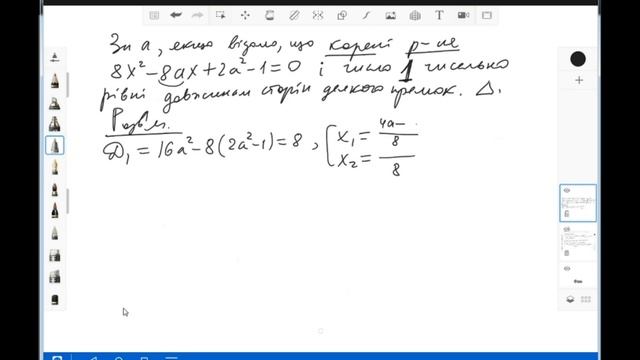 Зн a, якщо відомо, що корені р-ня
8x² - 8ax + 2a² - 1 = 0 і число 1 чисельно
рівні довжинам сторін деякого прямок. Δ.
Розв'яз.
D₁ = 16a² - 8(2a² - 1) = 8, [x₁ = (4a - ·)/8
x₂ = /8